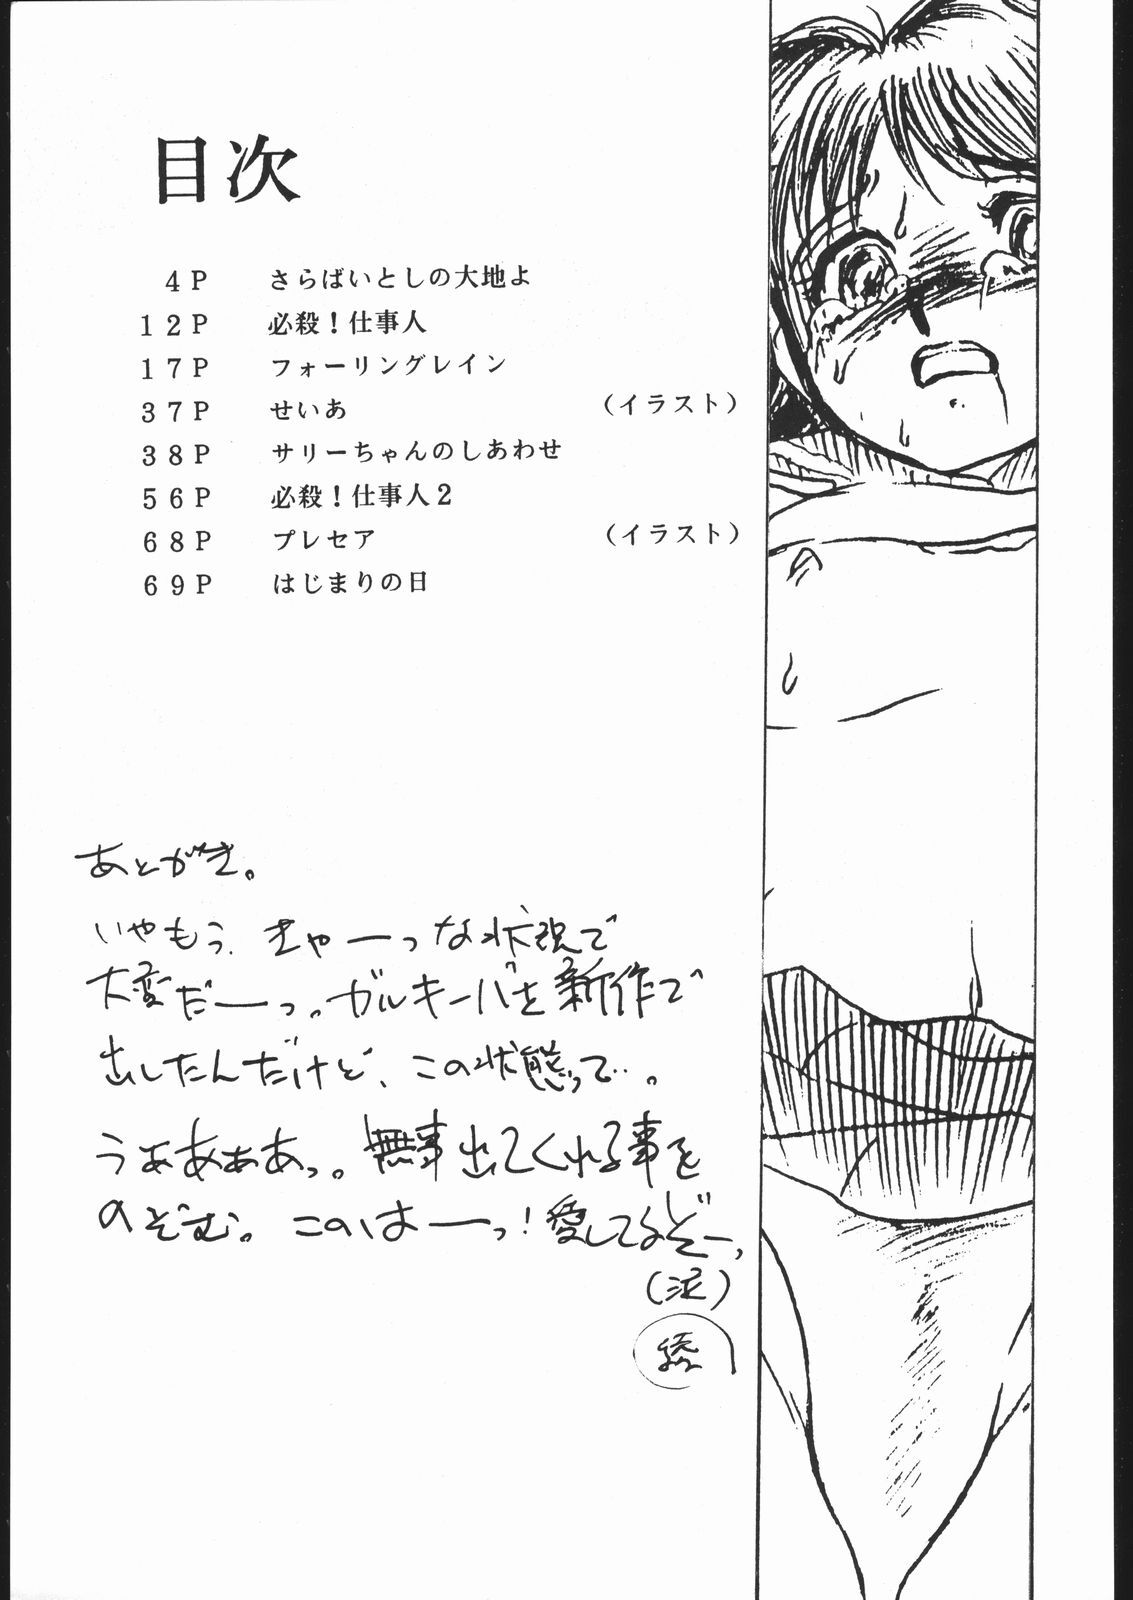 目次
4P さらばいとしの大地よ
12P 必殺！仕事人
17P フォーリングレイン
37P せいあ （イラスト）
38P サリーちゃんのしあわせ
56P 必殺！仕事人2
68P プレセア （イラスト）
69P はじまりの日
あとがき。
いやもう、きゃーっな状況で
大変だーっ。ガルキーバを新作で
出したんだけど、この状態って‥。
うぁあぁあっ。無事出てくれる事を
のぞむ。このはーっ！愛してるぞー、
（泥）